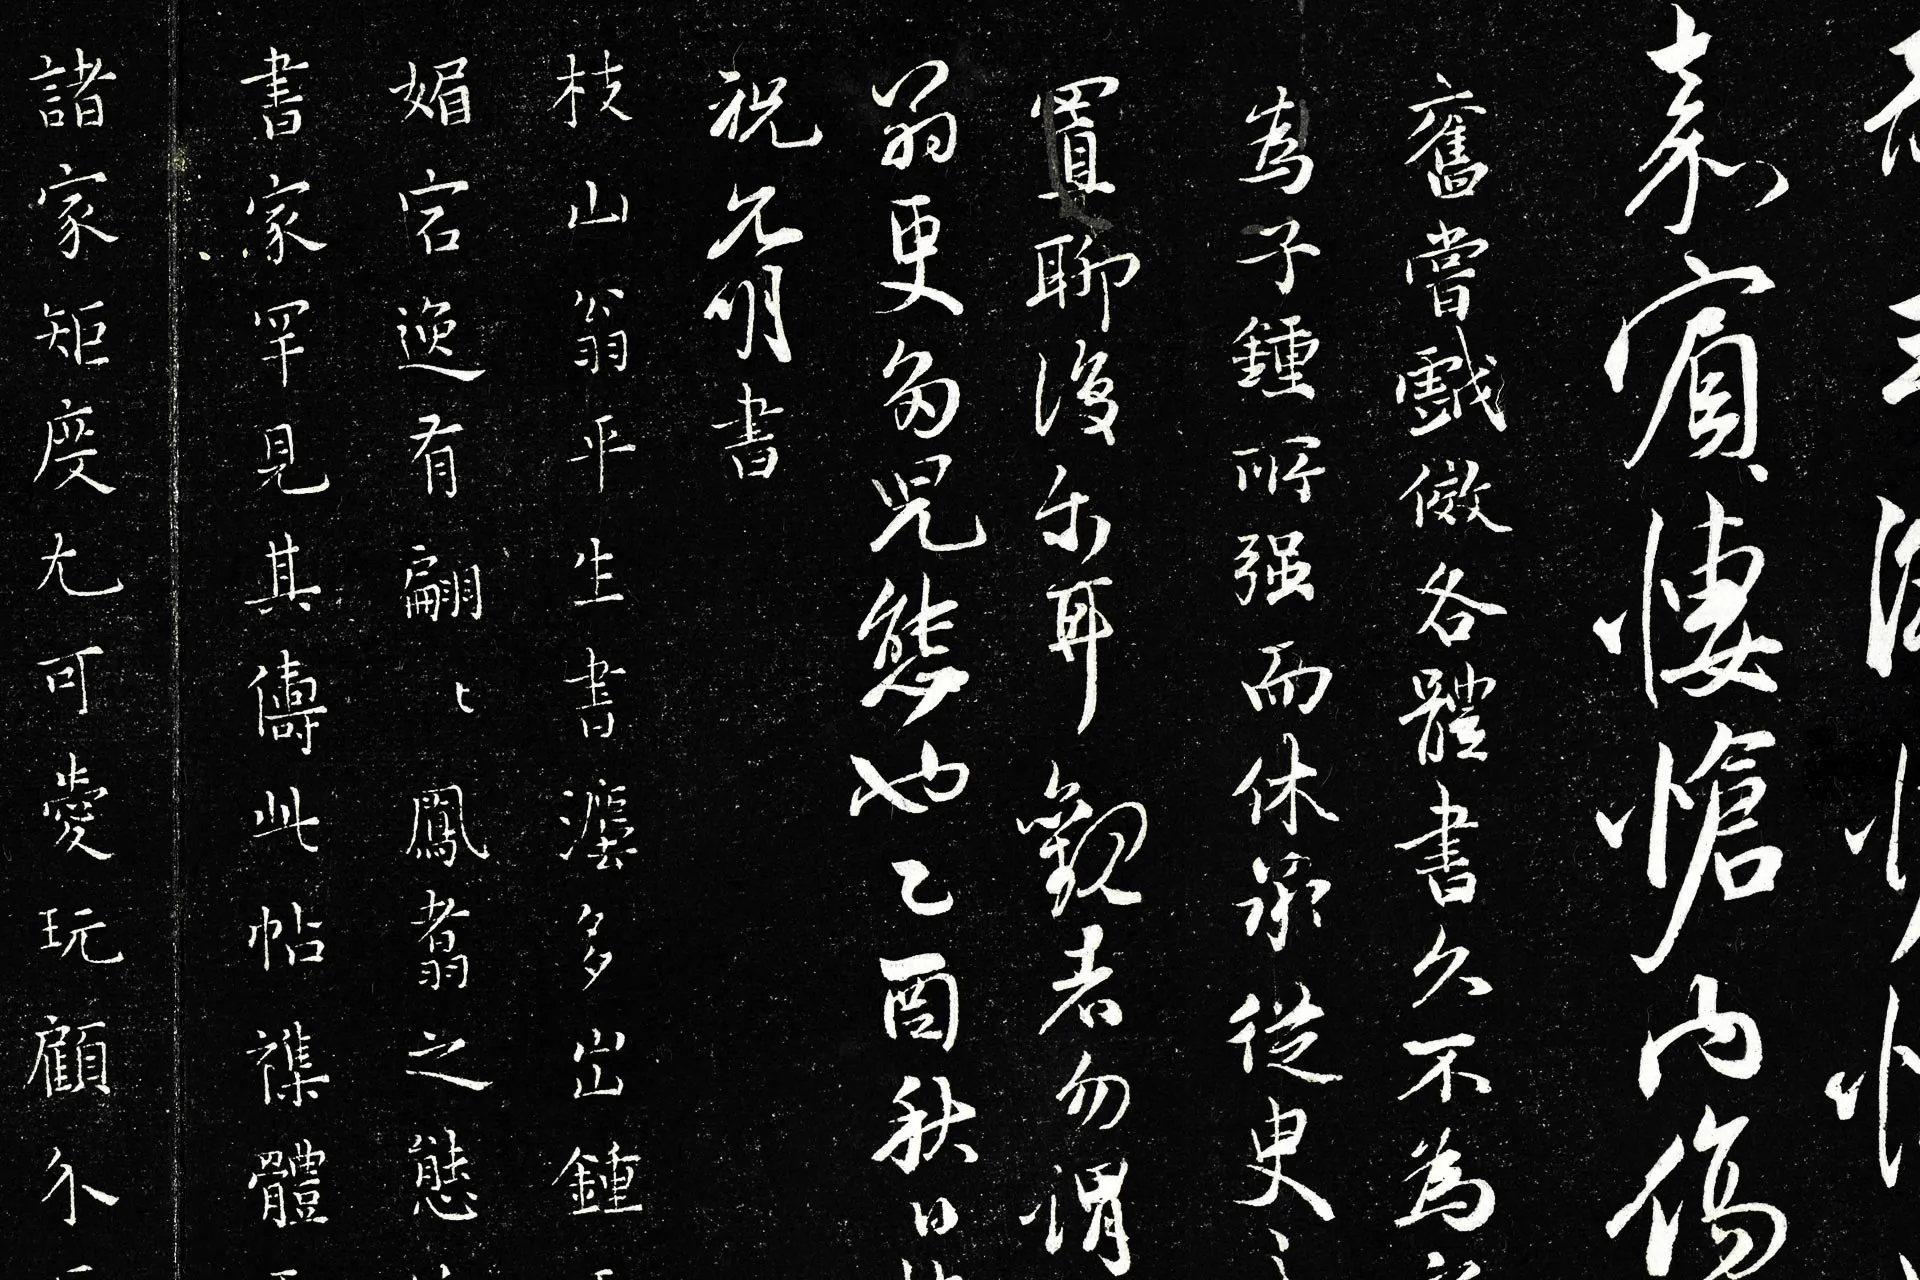 嘉賓悽愴內傷
舊嘗戲倣各體書久不為
為子鍾所強而休承從史
置聊復尔耳觀者勿謂
翁更為兒態也乙酉秋日
祝允明書
枝山翁平生書法多出鍾
媚宕逸有翩〻鳳翥之態
書家罕見其傳此帖襍體
諸家矩度尤可愛玩顧尔